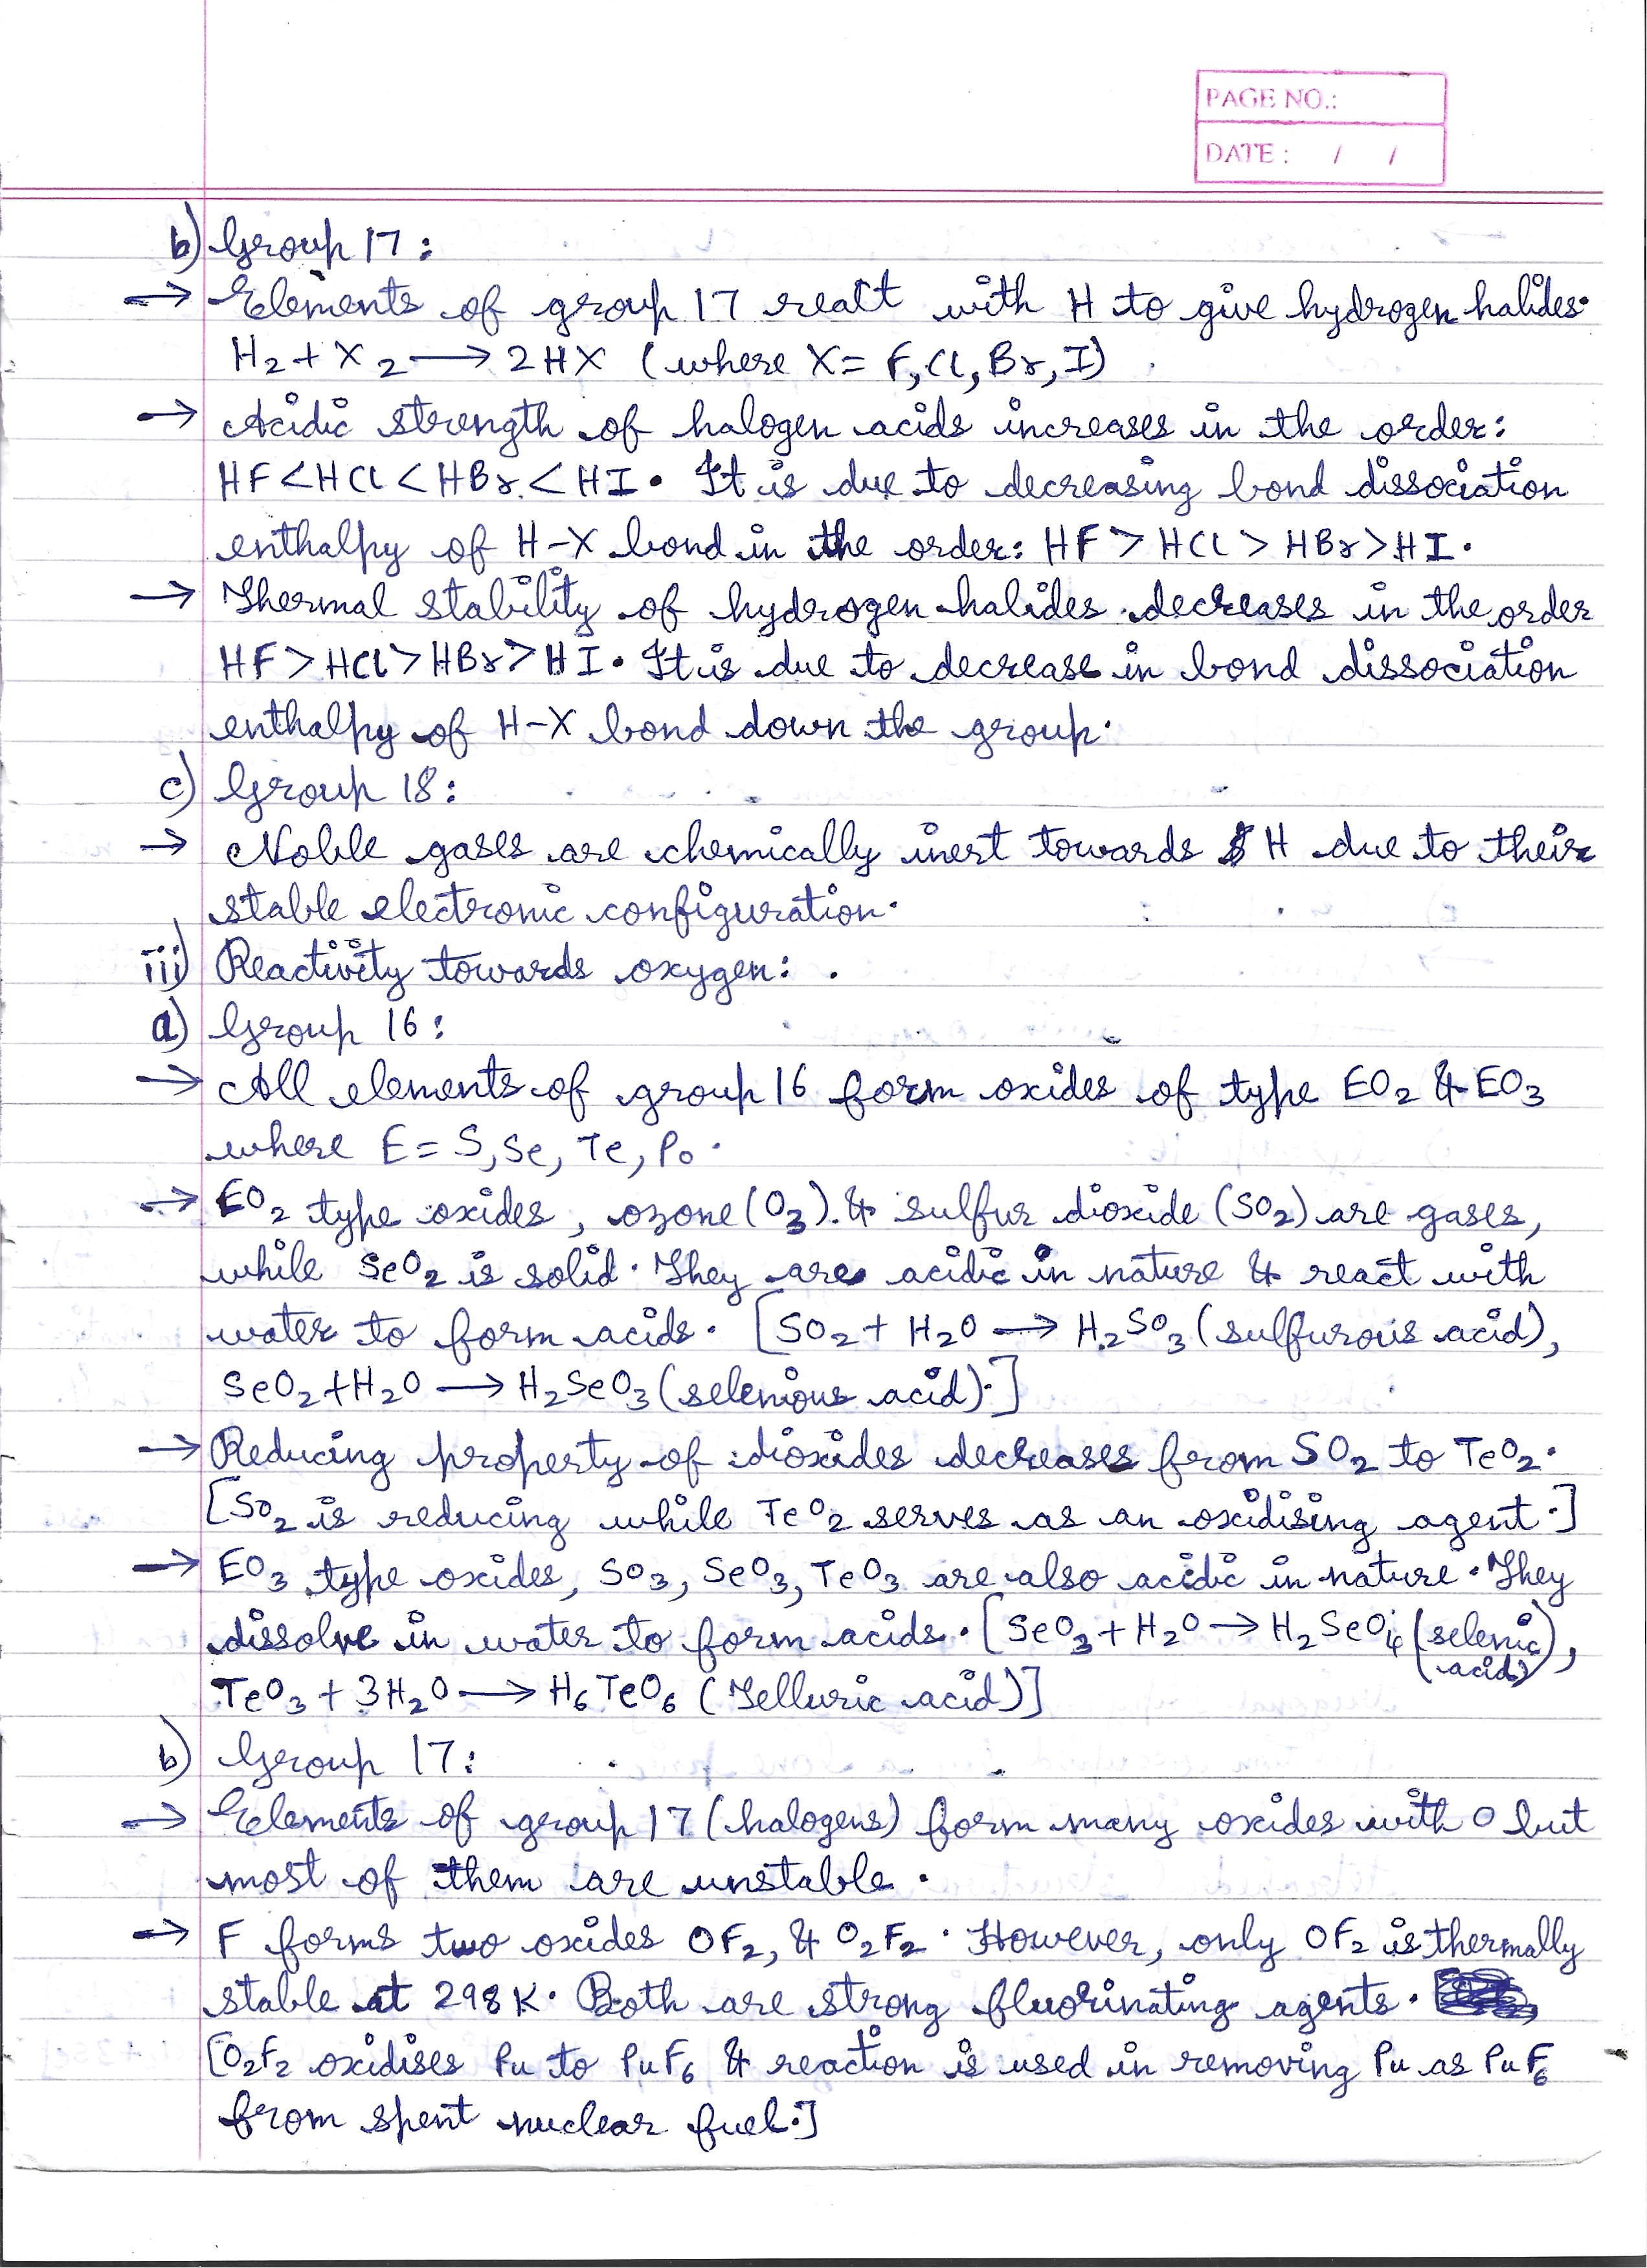 PAGE NO.:
DATE : / /
b) Group 17:
→ Elements of group 17 react with H to give hydrogen halides.
H₂ + X₂ → 2HX (where X = F, Cl, Br, I)
→ Acidic strength of halogen acids increases in the order:
HF < HCl < HBr < HI. It is due to decreasing bond dissociation
enthalpy of H-X bond in the order: HF > HCl > HBr > HI.
→ Thermal stability of hydrogen halides decreases in the order
HF > HCl > HBr > HI. It is due to decrease in bond dissociation
enthalpy of H-X bond down the group.
c) Group 18:
→ Noble gases are chemically inert towards H due to their
stable electronic configuration.
iii) Reactivity towards oxygen:
a) Group 16:
→ All elements of group 16 form oxides of type EO₂ & EO₃
where E = S, Se, Te, Po.
→ EO₂ type oxides, ozone (O₃) & sulfur dioxide (SO₂) are gases,
while SeO₂ is solid. They are acidic in nature & react with
water to form acids. [SO₂ + H₂O → H₂SO₃ (sulfurous acid),
SeO₂ + H₂O → H₂SeO₃ (selenious acid).]
→ Reducing property of dioxides decreases from SO₂ to TeO₂.
[SO₂ is reducing while TeO₂ serves as an oxidising agent.]
→ EO₃ type oxides, SO₃, SeO₃, TeO₃ are also acidic in nature. They
dissolve in water to form acids. [SeO₃ + H₂O → H₂SeO₄ (selenic
acid),
TeO₃ + 3H₂O → H₆TeO₆ (Telluric acid)]
b) Group 17:
→ Elements of group 17 (halogens) form many oxides with O but
most of them are unstable.
→ F forms two oxides OF₂, & O₂F₂. However, only OF₂ is thermally
stable at 298 K. Both are strong fluorinating agents.
[O₂F₂ oxidises Pu to PuF₆ & reaction is used in removing Pu as PuF₆
from spent nuclear fuel.]